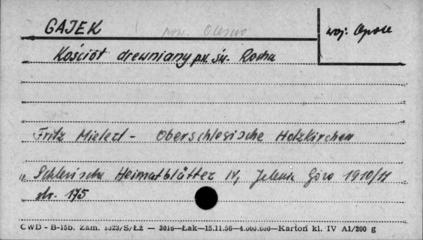 GAJEK
pow. Olesno
woj: Opole
Kościół drewniany p.w. św. Rocha
Fritz Mielert - Oberschlesische Holzkirchen
"Schlesische Heimatblätter IV, Jelenia Góra 1910/11
str. 175
CWD - B-15b. Zam. 5323/S/Łż — 3016 — Łak — 15.11.56 — 4.000.000 — Karton kl. IV A1/200 g